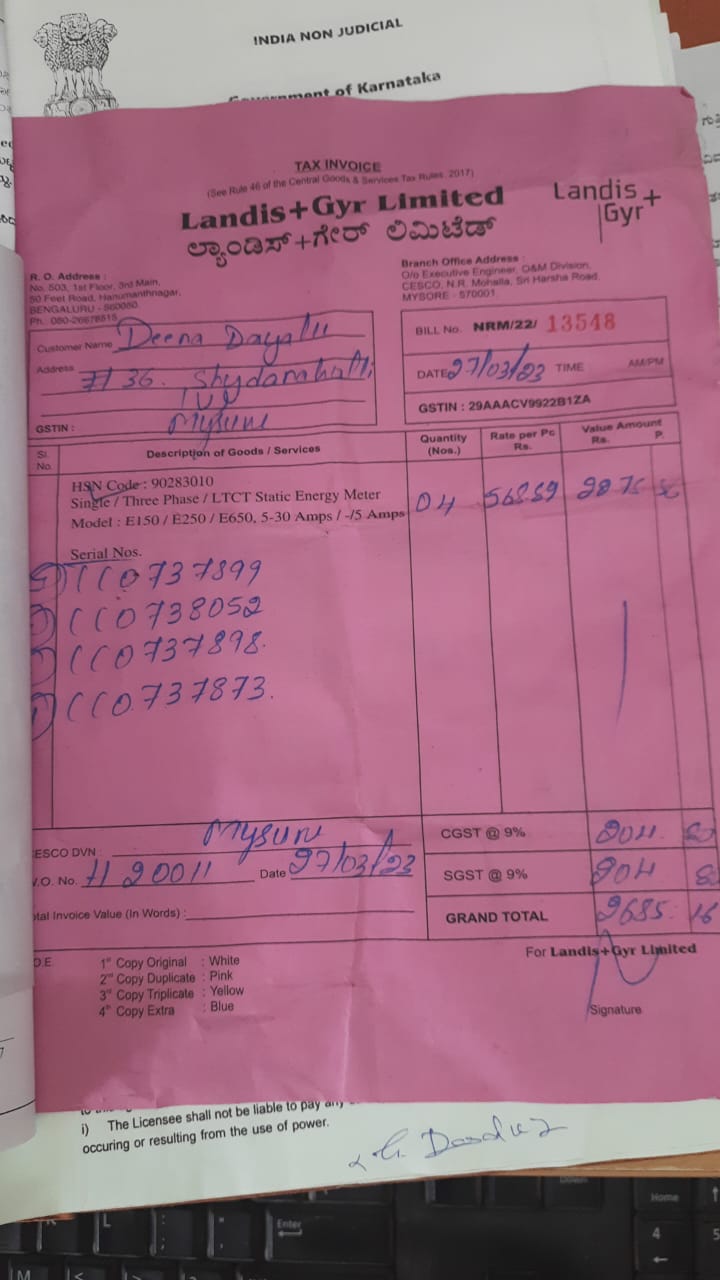 INDIA NON JUDICIAL
Government of Karnataka
TAX INVOICE
(See Rule 46 of the Central Goods & Services Tax Rules, 2017)
Landis+Gyr Limited
ಲ್ಯಾಂಡಿಸ್+ಗೇರ್ ಲಿಮಿಟೆಡ್
Landis+
Gyr
R. O. Address :
No. 503, 1st Floor, 3rd Main,
50 Feet Road, Hanumanthnagar,
BENGALURU - 560050
Ph : 080-26678515
Branch Office Address :
O/o Executive Engineer, O&M Division,
CESCO, N.R. Mohalla, Sri Harsha Road,
MYSORE - 570001
Customer Name Deena Dayalu
Address #36.
Mysure
GSTIN :
BILL No. NRM/22/ 13548
DATE 27/03/23 TIME AM/PM
GSTIN : 29AAACV9922B1ZA
Sl. No. Description of Goods / Services Quantity (Nos.) Rate per Pc Rs. Value Amount Rs. P.
HSN Code : 90283010
Single / Three Phase / LTCT Static Energy Meter
Model : E150 / E250 / E650, 5-30 Amps / -/5 Amps 04
Serial Nos.
CC0737899
CC0738052
CC0737898.
CC0737873.
ESCO DVN : Mysure
.O. No. # 20011 Date 27/03/23
tal Invoice Value (In Words) :
CGST @ 9% 204
SGST @ 9% 204
GRAND TOTAL 2685. 16
For Landis+Gyr Limited
Signature
O.E.
1st Copy Original : White
2nd Copy Duplicate : Pink
3rd Copy Triplicate : Yellow
4th Copy Extra : Blue
i) The Licensee shall not be liable to pay any
occuring or resulting from the use of power.
Enter
Home
4
5
L
M